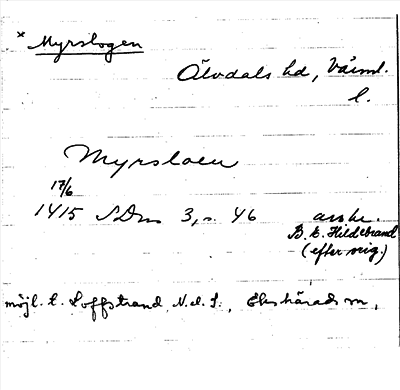 * Myrslogen
Älvdals hd, Värml.
l.
Myrsloen
17/6
1415 SDns 3, s. 46 avskr.
B. E. Hildebrand
(efter orig.)
möjl. l. Loffstrand, N. o. S., Ekshärads sn,